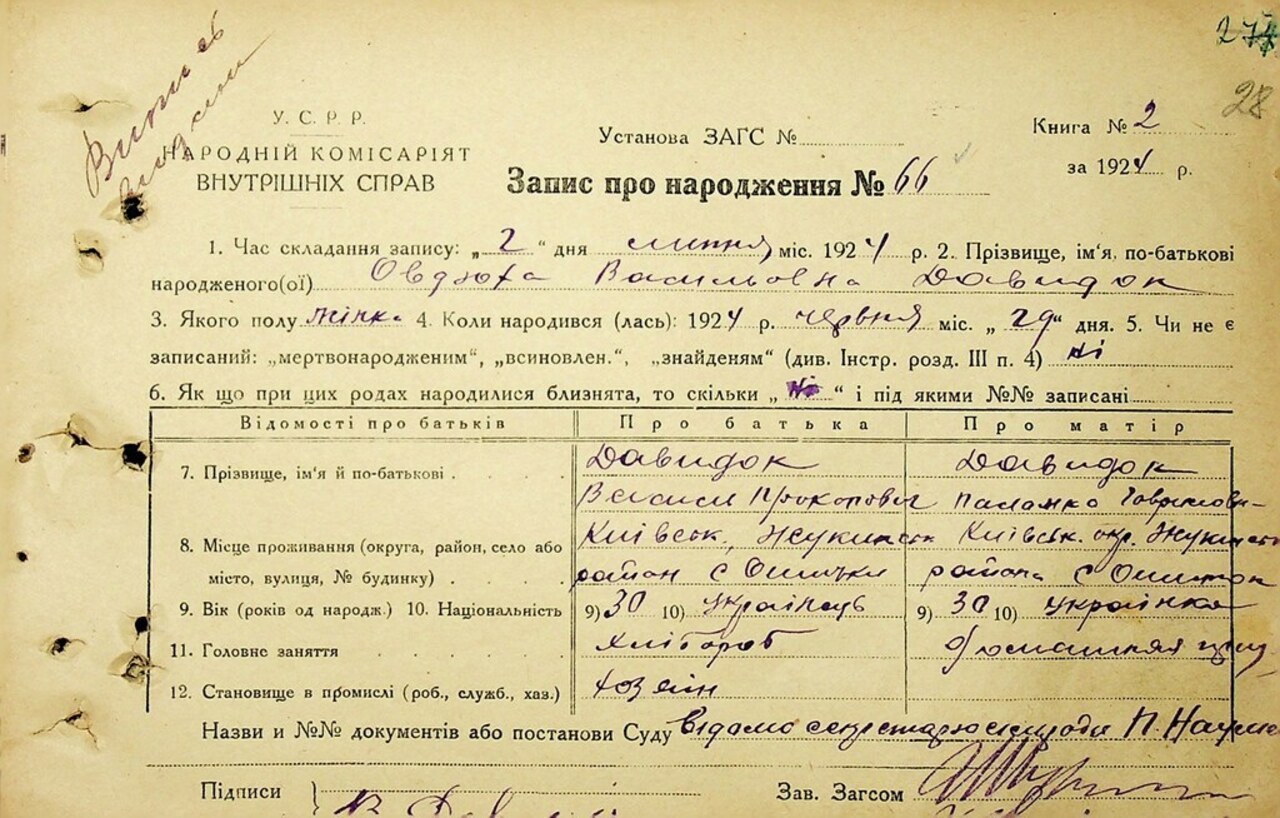 274
28
Випись
У. С. Р. Р.
НАРОДНІЙ КОМІСАРІЯТ
ВНУТРІШНІХ СПРАВ
Установа ЗАГС №
Книга № 2
за 1924 р.
Запис про народження № 66
1. Час складання запису: „2“ дня липня міс. 1924 р. 2. Прізвище, ім‘я, по-батькові
народженого(ої) Овдюха Васильовна Давидок
3. Якого полу жінка 4. Коли народився (лась): 1924 р. червня міс. „29“ дня. 5. Чи не є
записаний: „мертвонародженим“, „всиновлен.“, „знайденям“ (див. Інстр. розд. III п. 4) ні
6. Як що при цих родах народилися близнята, то скільки „ні“ і під якими №№ записані
Відомості про батьків Про батька Про матір
7. Прізвище, ім‘я й по-батькові Давидок Давидок
Василь Прокопович
8. Місце проживання (округа, район, село або Київськ., Жукинськ Київськ. окр. Жукинськ
місто, вулиця, № будинку) район с района с
9. Вік (років од народж.) 10. Національність 9) 30 10) українець 9) 30 10) українка
11. Головне заняття хлібороб домашня
12. Становище в промислі (роб., служб., хаз.) хозяїн
Назви и №№ документів або постанови Суду Відомо секретарю сільради П.
Підписи Зав. Загсом